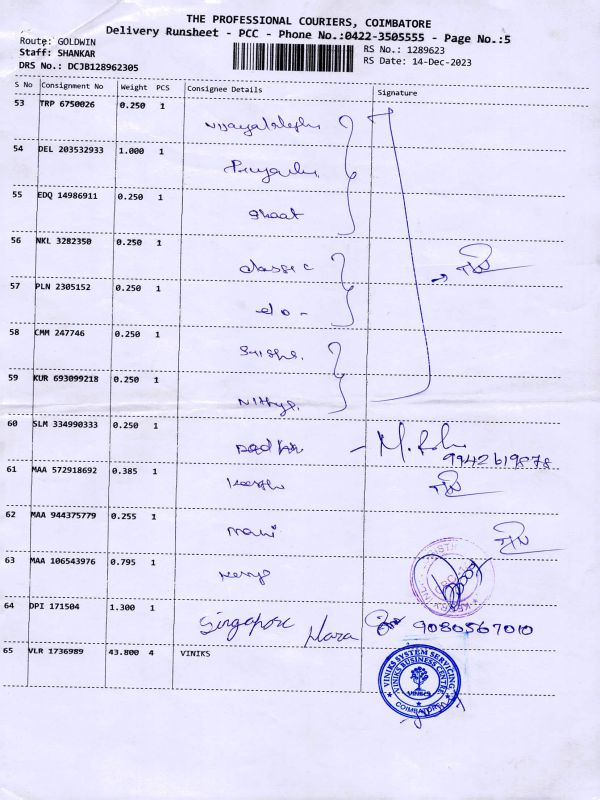 THE PROFESSIONAL COURIERS, COIMBATORE
Delivery Runsheet - PCC - Phone No.:0422-3505555 - Page No.:5
Route: GOLDWIN
RS No.: 1289623
Staff: SHANKAR
RS Date: 14-Dec-2023
DRS No.: DCJB128962305
S No Consignment No Weight PCS Consignee Details Signature
53 TRP 6750026 0.250 1
54 DEL 203532933 1.000 1
55 EDQ 14986911 0.250 1
56 NKL 3282350 0.250 1
classic
57 PLN 2305152 0.250 1
do -
58 CMM 247746 0.250 1
59 KUR 693099218 0.250 1
Nithya.
60 SLM 334990333 0.250 1
9942619878
61 MAA 572918692 0.385 1
62 MAA 944375779 0.255 1
mani
63 MAA 106543976 0.795 1
64 DPI 171504 1.300 1
Singapore 9080567010
65 VLR 1736989 43.800 4 VINIKS
VINIKS SYSTEM SERVICING
VINIKS BUSINESS CENTRE
VINIKS
COIMBATORE